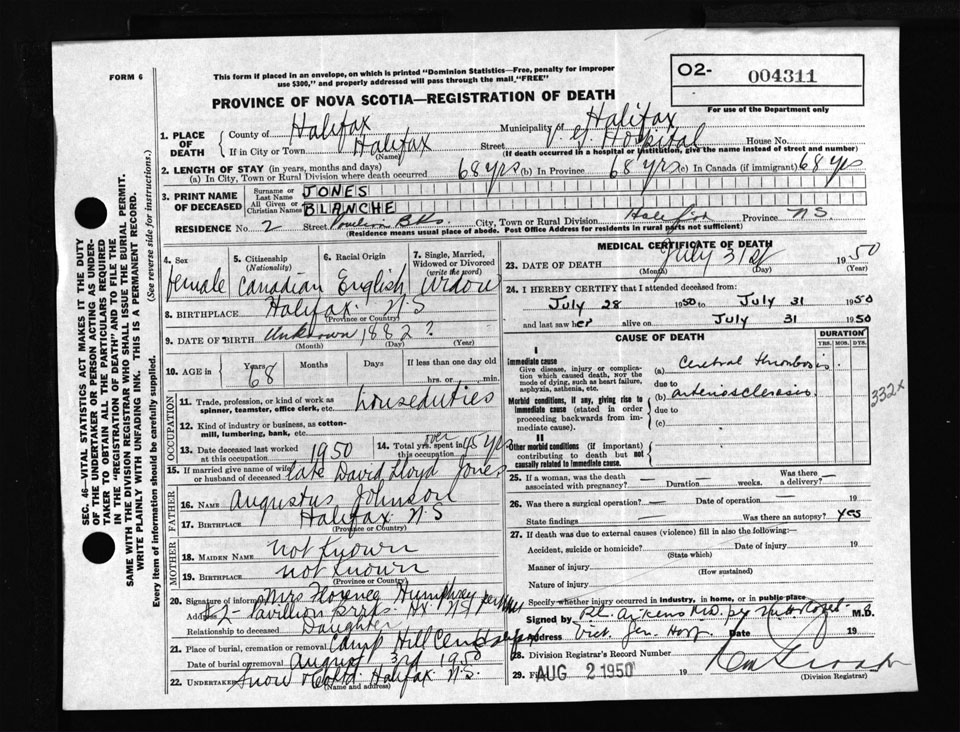 FORM 6
This form if placed in an envelope, on which is printed "Dominion Statistics—Free, penalty for improper
use $300," and properly addressed will pass through the mail "FREE"
O2- 004311
For use of the Department only
PROVINCE OF NOVA SCOTIA—REGISTRATION OF DEATH
1. PLACE OF DEATH
County of Halifax Municipality of Halifax
If in City or Town Halifax (Name) Street Hospital House No.
(If death occurred in a hospital or institution, give the name instead of street and number)
2. LENGTH OF STAY (in years, months and days)
(a) In City, Town or Rural Division where death occurred 68 yrs (b) In Province 68 yrs (c) In Canada (if immigrant) 68 yrs
3. PRINT NAME OF DECEASED
Surname or Last Name JONES
All Given or Christian Names BLANCHE
RESIDENCE No. 2 Street City, Town or Rural Division Halifax Province N.S.
(Residence means usual place of abode. Post Office Address for residents in rural parts not sufficient)
4. Sex female
5. Citizenship (Nationality) Canadian
6. Racial Origin English
7. Single, Married, Widowed or Divorced (write the word) Widow
8. BIRTHPLACE Halifax N.S (Province or Country)
9. DATE OF BIRTH Unknown 1882? (Month) (Day) (Year)
10. AGE in Years 68 Months Days If less than one day old hrs. or min.
OCCUPATION
11. Trade, profession, or kind of work as spinner, teamster, office clerk, etc. houseduties
12. Kind of industry or business, as cotton-mill, lumbering, bank, etc.
13. Date deceased last worked at this occupation 1950
14. Total yrs. spent in this occupation over 45 yrs
15. If married give name of wife or husband of deceased late David Lloyd Jones
FATHER
16. NAME Augustus Johnson
17. BIRTHPLACE Halifax N.S (Province or Country)
MOTHER
18. MAIDEN NAME not known
19. BIRTHPLACE not known (Province or Country)
20. Signature of informant Mrs Florence Humphrey
Address #2- Pavillion Brks. Hx. N.S
Relationship to deceased Daughter
21. Place of burial, cremation or removal Camp Hill
Date of burial or removal August 3rd 1950
22. Undertaker Snow Halifax N.S. (Name and address)
MEDICAL CERTIFICATE OF DEATH
23. DATE OF DEATH July 31st 1950 (Month) (Day) (Year)
24. I HEREBY CERTIFY that I attended deceased from:
July 28 1950 to July 31 1950
and last saw her alive on July 31 1950
CAUSE OF DEATH
DURATION
YRS. MOS. DYS.
I
Immediate cause
Give disease, injury or complication which caused death, not the mode of dying, such as heart failure, asphyxia, asthenia, etc.
(a) Cerebral thrombosis
due to
Morbid conditions, if any, giving rise to immediate cause (stated in order proceeding backwards from immediate cause).
(b) arteriosclerosis
due to
(c)
332x
II
Other morbid conditions (if important) contributing to death but not causally related to immediate cause.
25. If a woman, was the death associated with pregnancy? — Duration — weeks. Was there a delivery? —
26. Was there a surgical operation? — Date of operation — 19
State findings — Was there an autopsy? yes
27. If death was due to external causes (violence) fill in also the following:
Accident, suicide or homicide? (State which) Date of injury 19
Manner of injury (How sustained)
Nature of injury
Specify whether injury occurred in industry, in home, or in public place
Signed by M.D. by M.D.
Address Vict. Gen. Hosp. Date 19
28. Division Registrar's Record Number
29. AUG 2 1950
(Division Registrar)
SEC. 46—VITAL STATISTICS ACT MAKES IT THE DUTY
OF THE UNDERTAKER OR PERSON ACTING AS UNDER-
TAKER TO OBTAIN ALL THE PARTICULARS REQUIRED
IN THE "REGISTRATION OF DEATH" AND TO FILE THE
SAME WITH THE DIVISION REGISTRAR WHO SHALL ISSUE THE BURIAL PERMIT.
WRITE PLAINLY WITH UNFADING INK. THIS IS A PERMANENT RECORD.
Every item of information should be carefully supplied. (See reverse side for instructions.)